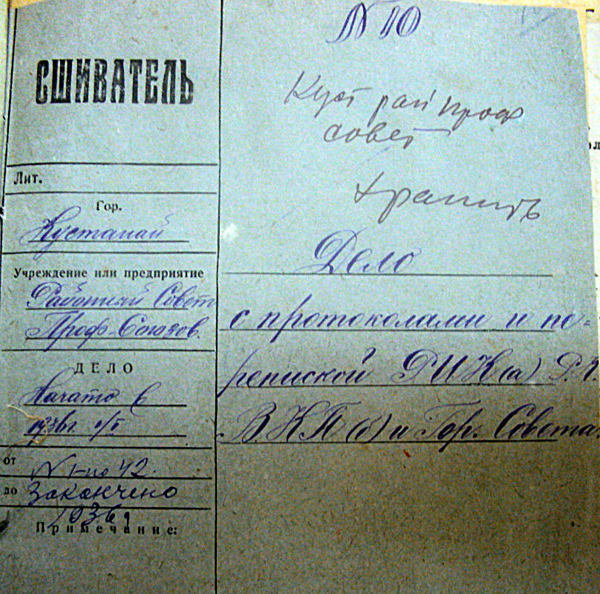 № 10
СШИВАТЕЛЬ
Куст рай проф
совет
хранить
Лит.
Гор.
Кустанай
Учреждение или предприятие
Районный Совет
Проф. Союзов.
ДЕЛО
Начато в
1936г. 1/I
от
№ 1-по 42.
до
Закончено
1936г
Примечание:
Дело
с протоколами и пе-
репиской РИК(а) Р.К.
ВКП(б) и Гор. Совета.